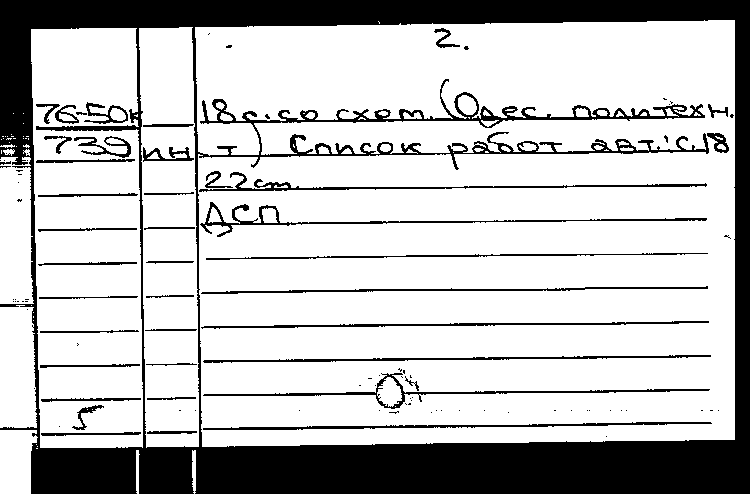 2.
76-50к 18 с. со схем. (Одес. политехн.
739 ин-т) Список работ авт.: с. 18
22 cm.
ДСП
5